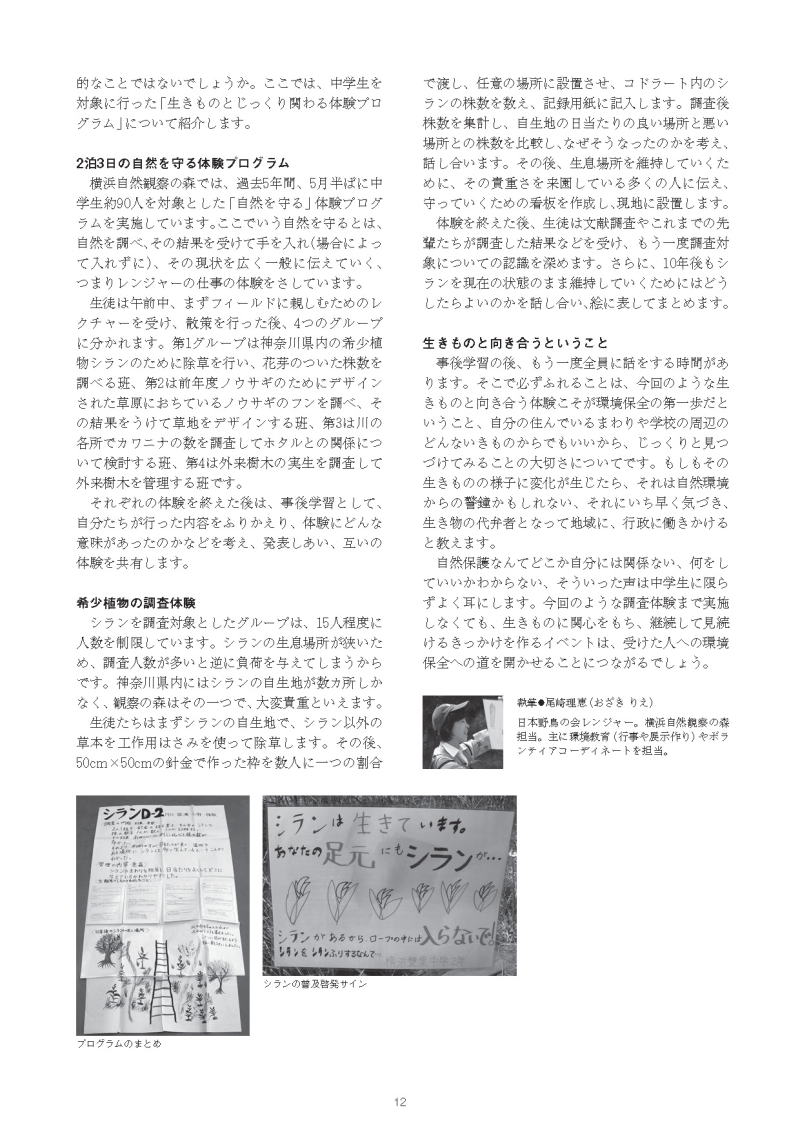 的なことではないでしょうか。ここでは、中学生を
対象に行った「生きものとじっくり関わる体験プロ
グラム」について紹介します。
2泊3日の自然を守る体験プログラム
横浜自然観察の森では、過去5年間、5月半ばに中
学生約90人を対象とした「自然を守る」体験プログ
ラムを実施しています。ここでいう自然を守るとは、
自然を調べ、その結果を受けて手を入れ(場合によっ
て入れずに)、その現状を広く一般に伝えていく、
つまりレンジャーの仕事の体験をさしています。
生徒は午前中、まずフィールドに親しむためのレ
クチャーを受け、散策を行った後、4つのグループ
に分かれます。第1グループは神奈川県内の希少植
物シランのために除草を行い、花芽のついた株数を
調べる班、第2は前年度ノウサギのためにデザイン
された草原におちているノウサギのフンを調べ、そ
の結果をうけて草地をデザインする班、第3は川の
各所でカワニナの数を調査してホタルとの関係につ
いて検討する班、第4は外来樹木の実生を調査して
外来樹木を管理する班です。
それぞれの体験を終えた後は、事後学習として、
自分たちが行った内容をふりかえり、体験にどんな
意味があったのかなどを考え、発表しあい、互いの
体験を共有します。
希少植物の調査体験
シランを調査対象としたグループは、15人程度に
人数を制限しています。シランの生息場所が狭いた
め、調査人数が多いと逆に負荷を与えてしまうから
です。神奈川県内にはシランの自生地が数カ所しか
なく、観察の森はその一つで、大変貴重といえます。
生徒たちはまずシランの自生地で、シラン以外の
草本を工作用はさみを使って除草します。その後、
50cm×50cmの針金で作った枠を数人に一つの割合
で渡し、任意の場所に設置させ、コドラート内のシ
ランの株数を数え、記録用紙に記入します。調査後
株数を集計し、自生地の日当たりの良い場所と悪い
場所との株数を比較し、なぜそうなったのかを考え、
話し合います。その後、生息場所を維持していくた
めに、その貴重さを来園している多くの人に伝え、
守っていくための看板を作成し、現地に設置します。
体験を終えた後、生徒は文献調査やこれまでの先
輩たちが調査した結果などを受け、もう一度調査対
象についての認識を深めます。さらに、10年後もシ
ランを現在の状態のまま維持していくためにはどう
したらよいのかを話し合い、絵に表してまとめます。
生きものと向き合うということ
事後学習の後、もう一度全員に話をする時間があ
ります。そこで必ずふれることは、今回のような生
きものと向き合う体験こそが環境保全の第一歩だと
いうこと、自分の住んでいるまわりや学校の周辺の
どんないきものからでもいいから、じっくりと見つ
づけてみることの大切さについてです。もしもその
生きものの様子に変化が生じたら、それは自然環境
からの警鐘かもしれない、それにいち早く気づき、
生き物の代弁者となって地域に、行政に働きかける
と教えます。
自然保護なんてどこか自分には関係ない、何をし
ていいかわからない、そういった声は中学生に限ら
ずよく耳にします。今回のような調査体験まで実施
しなくても、生きものに関心をもち、継続して見続
けるきっかけを作るイベントは、受けた人への環境
保全への道を開かせることにつながるでしょう。
執筆●尾崎理恵(おざき りえ)
日本野鳥の会レンジャー。横浜自然観察の森
担当。主に環境教育(行事や展示作り)やボラ
ンティアコーディネートを担当。
シランD-2
シランは生きています。
あなたの足元にもシランが…
シランがあるから、ロープの中には入らないで!
シランの普及啓発サイン
プログラムのまとめ
12